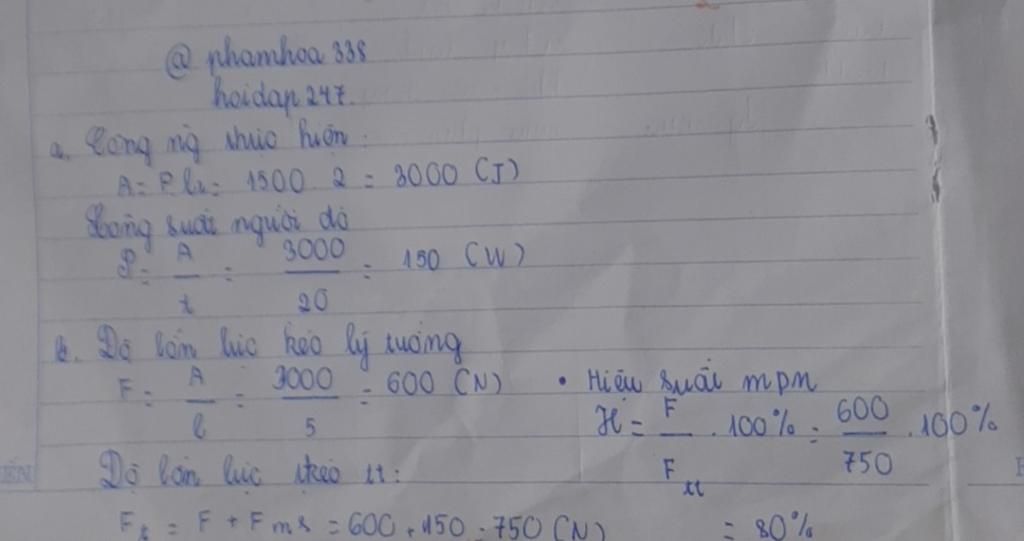 @ phamhoa 338
hoidap 247.
a. Công ng thực hiện:
A = P.h = 1500 . 2 = 3000 (J)
Công suất người đó
P = A / t = 3000 / 20 = 150 (W)
b. Độ lớn lực kéo lý tưởng
F = A / l = 3000 / 5 = 600 (N)
Độ lớn lực kéo tt:
Ft = F + Fms = 600 + 150 = 750 (N)
• Hiệu suất mpn
H = F / Ftt . 100% = 600 / 750 . 100%
= 80%